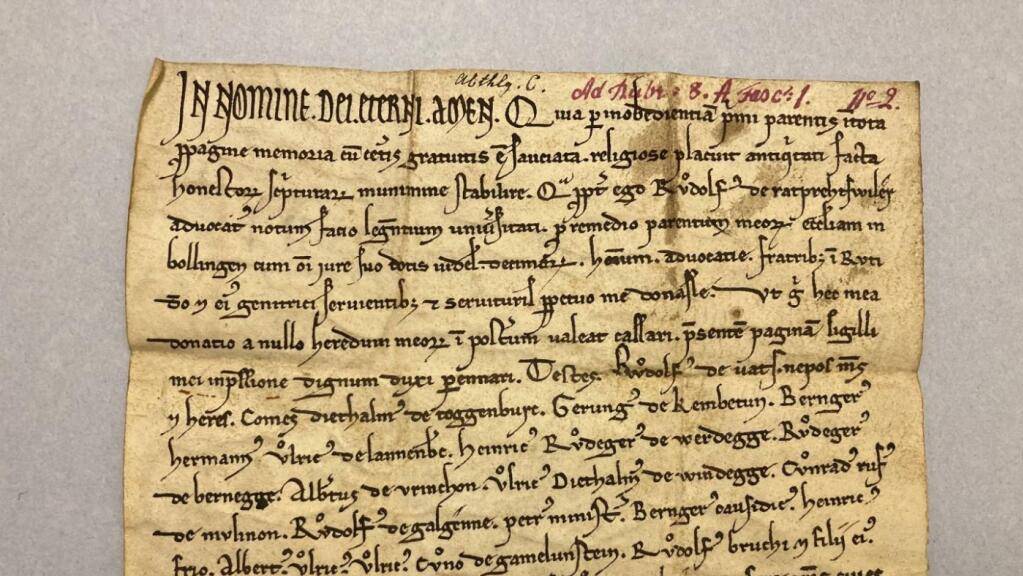 Abthlg. C.
Ad Rubr. 8. A Fasc. 1. No 2.
IN NOMINE. DEI. ETERNI. AMEN. Quia p̄ inobedientiā p̄mi parentis ītota
p̄pagine memoria cū cet̄is gratuitis ē sauciata. religiose placuit antiq̄tati facta
honestoꝝ sc̄pturaꝝ munimine stabilire. Qᵃpp̄t ego Růdolf᾽ de ratprehtswiler
advocat᾽ notum facio leḡntium univ̄sitati. p̄ remedio parentium meoꝝ ecc̄liam in
bollingen cum om̄i iure suo dotis videl. decimaꝝ. advocatie. fratribꝫ ī Ruti
do ⁊ ei᾽ genitrici servientibꝫ ⁊ servituris p̄petuo me donasse. Ut ḡ hec mea
donatio a nullo heredum meoꝝ ī post̄um valeat cassari. p̄sentē paginā sigilli
mei inp̄ssione dignum duxi p̄ennari. Testes. Růdolf᾽ de vats. nepos m̄s
⁊ heres. Comes diethalm᾽ de toggenburc. Gerung᾽ de Kembetun. Bernger᾽
hermann᾽ Ůlric᾽ de heinric᾽ Růdeger᾽ de werdegge. Růdeger᾽
de bernegge. Alb̄tus de urinchon. Ůlric᾽ Diethalm᾽ de windegge. Cůnrad᾽ ruf᾽
de mulinon. Růdolf᾽ de galgenne. petr᾽ minist̄. Bernger᾽ causidic᾽. heinric᾽
frio. Albert᾽. Ůlric᾽. Ůlric᾽. Cůno de gamelunstein. Růdolf᾽ bruchi ⁊ filii ei᾽.